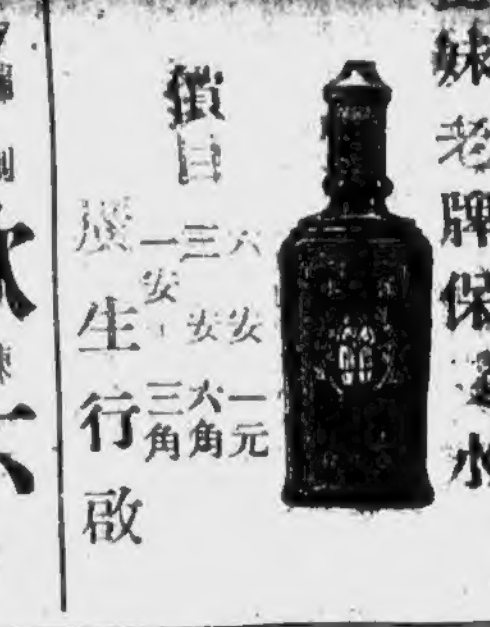 妹老牌保水
價目
六安一元
三安六角
一安三角
廣生行啟